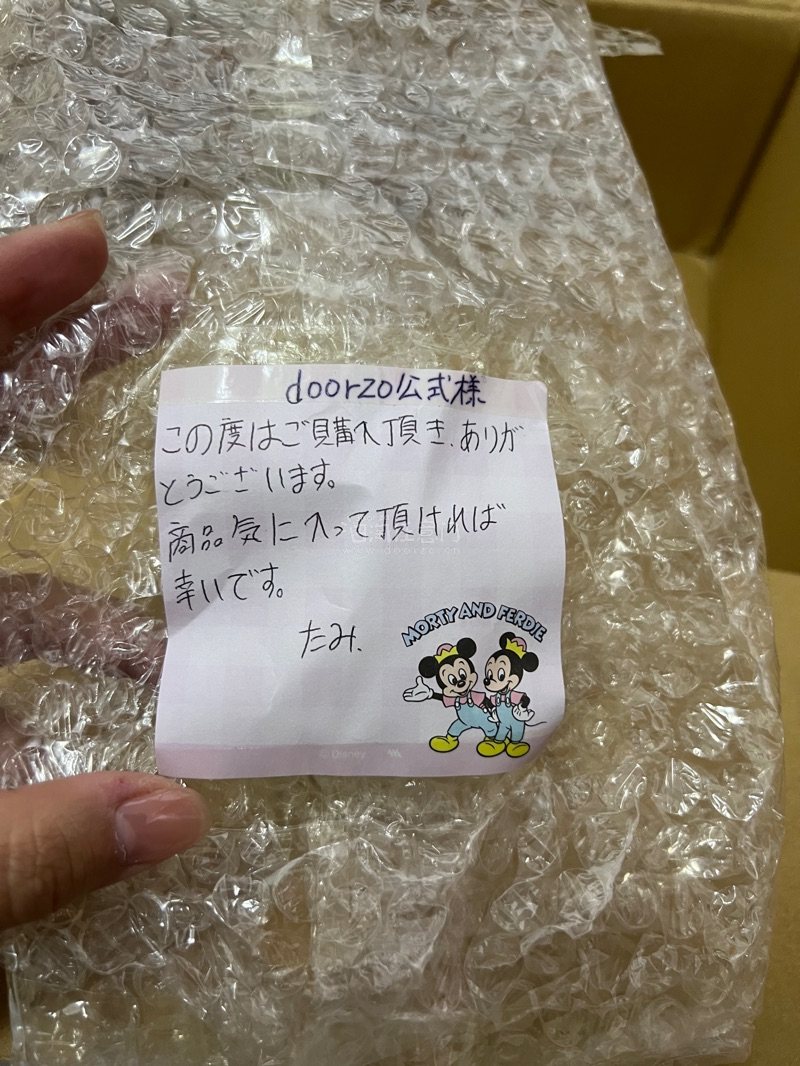 doorzo公式様
この度はご購入頂き、ありが
とうございます。
商品気に入って頂ければ
幸いです。
たみ.
MORTY AND FERDIE
© Disney
www.doorzo.cn